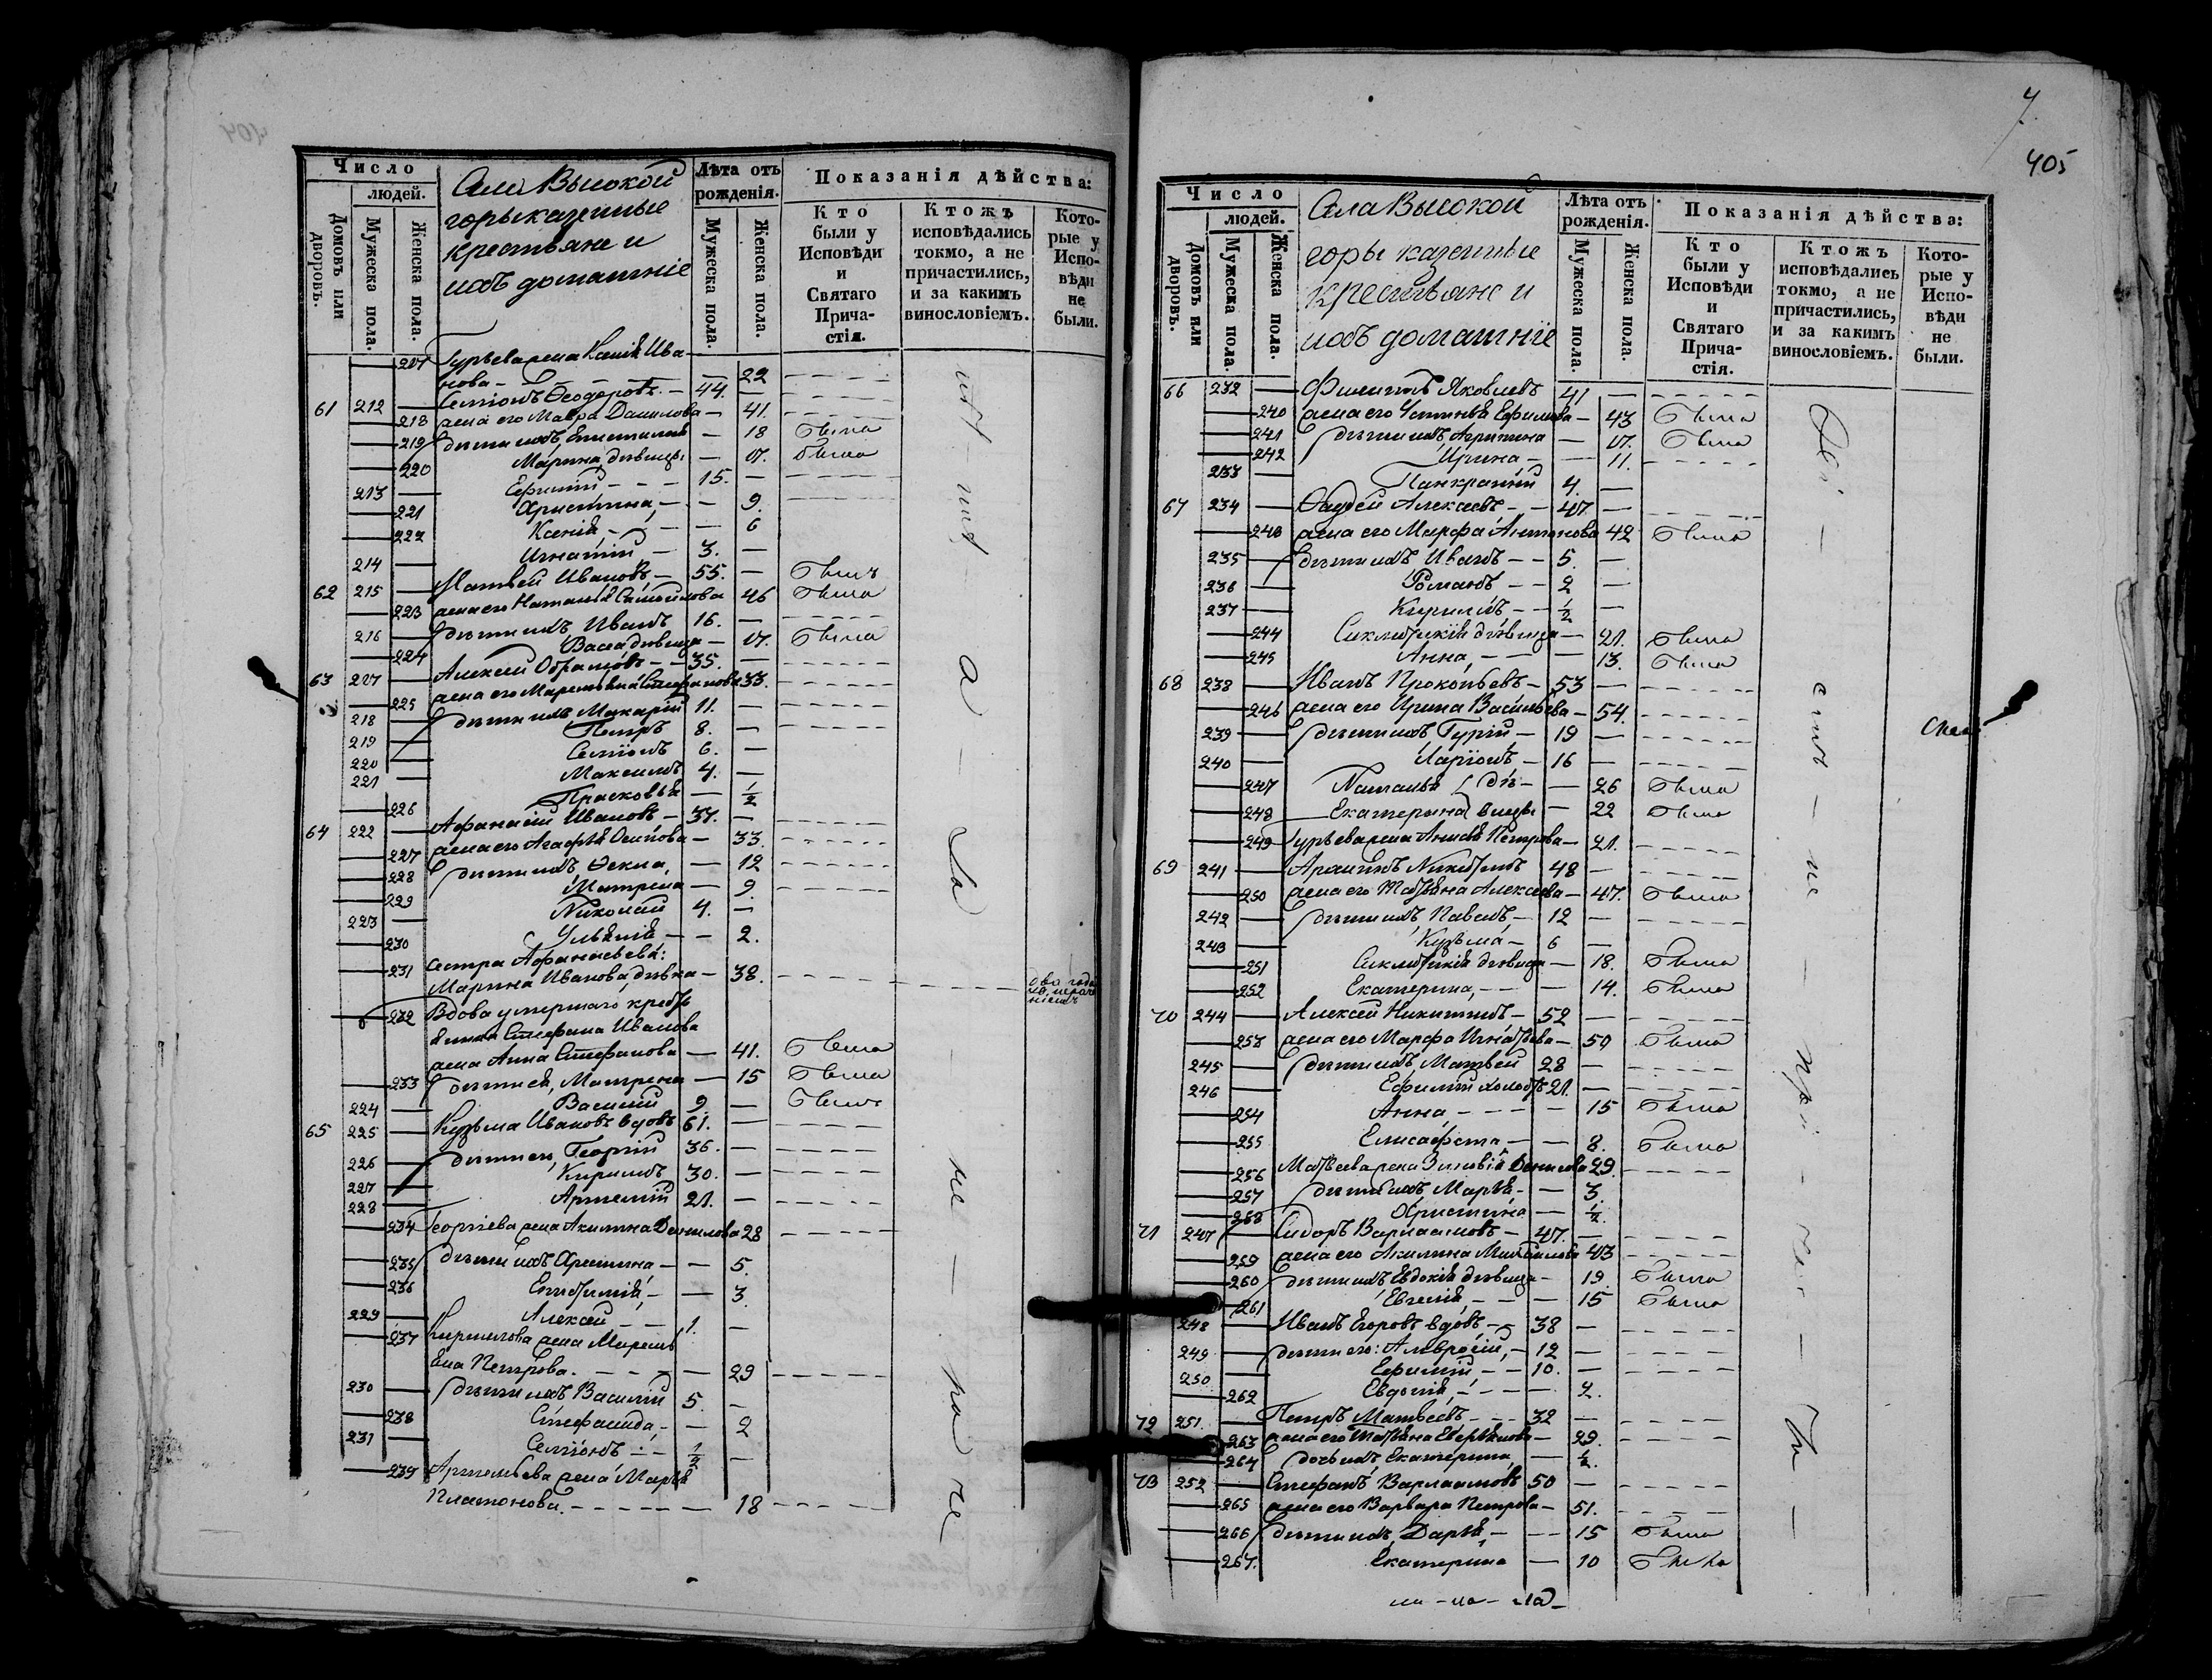 404
Число
людей.
Домовъ или дворовъ.
Мужеска пола.
Женска пола.
Села Высокой
горы казенные
крестьяне и
ихъ домашніе
Лѣта отъ рожденія.
Мужеска пола.
Женска пола.
Показанія дѣйства:
Кто были у Исповѣди и Святаго Прича-стія.
Ктожъ исповѣдались токмо, а не причастились, и за какимъ винословіемъ.
Кото-рые у Испо-вѣди не были.
207 Гурьева жена Ксенія Ива-
нова - 22
61 212 Семіонъ Ѳеодоровъ - 44.
218 жена его Мавра Данилова - 41.
219 дѣти ихъ, - 18 была
220 Марина дѣвицы - 17. была
213 Ефимій - 15.
221 Христина, - 9.
222 Ксенія - 6
214 Игнатій - 3.
62 215 Матвей Ивановъ - 55. былъ
223 жена его Наталія - 46 была
216 дѣти ихъ, Иванъ 16.
224 Васса дѣвица - 17. была
63 217 Алексей - 35.
225 жена его Стефанова 33.
218 дѣти ихъ Макарій 11.
219 Петръ 8.
220 Семіонъ 6.
221 Максимъ 4.
226 Прасковья - ½
64 222 Афанасій Ивановъ - 37.
227 жена его Агафья Осипова - 33.
228 дѣти ихъ, Ѳекла, - 12
229 Матрена - 9.
223 Николай 4.
230 Ульянія - 2.
Сестра Афанасьева:
231 Марина Иванова, дѣвка - 38.
232 Вдова умершаго кресть
янина Стефана Иванова
жена Анна Стефанова - 41. была
233 дѣти ея, Матрена - 15 была
224 Василій 9 былъ
65 225 Кузьма Ивановъ вдовъ 61.
226 дѣти его, Георгій 36.
227 Кирилъ 30.
228 Артемій 21.
234 Георгіева жена Акилина Данилова 28
235 дѣти ихъ Христина - 5.
236 Евфимія, - 3.
229 Алексей - 1.
237 Кирилова жена Мареми
яна Петрова. - 29
230 дѣти ихъ Василій 5.
238 Стефанида, - 2
231 Семіонъ - ½
239 Артемьева жена Марья
Платонова. - 18
405
Число
людей.
Домовъ или дворовъ.
Мужеска пола.
Женска пола.
Села Высокой
горы казенные
крестьяне и
ихъ домашніе
Лѣта отъ рожденія.
Мужеска пола.
Женска пола.
Показанія дѣйства:
Кто были у Исповѣди и Святаго Прича-стія.
Ктожъ исповѣдались токмо, а не причастились, и за какимъ винословіемъ.
Кото-рые у Испо-вѣди не были.
66 232 Филиппъ Яковлевъ 41
240 жена его Устинья Ефимова - 43 была
241 дѣти ихъ, Агрипина - 17. была
242 Ирина - 11.
233 Панкратій 4.
67 234 Ѳадей Алексеевъ - 47.
243 жена его Марфа Антонова 42 была
235 дѣти ихъ Иванъ - 5.
236 Романъ - 2
237 Кирилъ - ½
244 Сиклитикія дѣвица - 21. была
245 Анна, - 13. была
68 238 Иванъ Прокопьевъ - 53
246 жена его Ирина Васильева - 54.
239 дѣти ихъ Гурій - 19
240 Ларіонъ, - 16
247 Наталья дѣ- - 26 была
248 Екатерина вицы - 22 была
249 Гурьева жена Анисья Петрова - 21.
69 241 Никитинъ 48
250 жена его Татьяна Алексеева - 47. была
242 дѣти ихъ, Павелъ - 12
243 Кузьма - 6
251 Сиклитикія дѣвица - 18. была
252 Екатерина, - 14. была
70 244 Алексей Никитинъ - 52
253 жена его Марфа Игнатьева - 50 была
245 дѣти ихъ, Матвей 28
246 Ефимій холостъ 21.
254 Анна, - 15 была
255 Елисафета - 8. была
256 Матвеева жена Зиновія Денисова 29.
257 дѣти ихъ Марья - 3.
258 Христина - ½.
71 247 Сидоръ Варлаамовъ - 47.
259 жена его Акилина Михайлова 43
260 дѣти ихъ Евдокія дѣвица - 19. была
261 Евгенія, - 15 была
248 Иванъ Егоровъ вдовъ - 38
249 дѣти его: Амвросій, - 12
250 Ефимій, - 10.
262 Евдокія, - 2.
72 251. Петръ Матвеевъ - 32
263 жена его Татьяна - 29.
264 дочь ихъ, Екатерина, - ½.
73 252 Стефанъ Варлаамовъ 50
265 жена его Варвара Петрова - 51.
266 дѣти ихъ, Дарья, - 15 была
267. Екатерина - 10 была